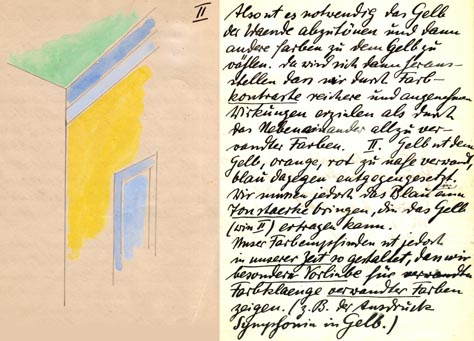 II
Also ist es notwendig das Gelb
der Waende abzutönen und dann
andere Farben zu dem Gelb zu
wählen. Da wird sich dann heraus-
stellen dass wir durch Farb-
kontraste reichere und angenehmere
Wirkungen erzielen als durch
das Nebeneinander allzu ver-
wandter Farben. II. Gelb ist dem
Gelb, orange, rot zu nahe verwandt,
blau dagegen entgegengesetzt.
Wir müssen jedoch das Blau in eine
Tonstaerke bringen, die das Gelb
(wie II) ertragen kann.
Unser Farbempfinden ist jedoch
in unserer Zeit so gestaltet, dass wir
besondere Vorliebe für
Farbklaenge verwandter Farben
zeigen. (z.B. der Ausdruck
Symphonie in Gelb.)